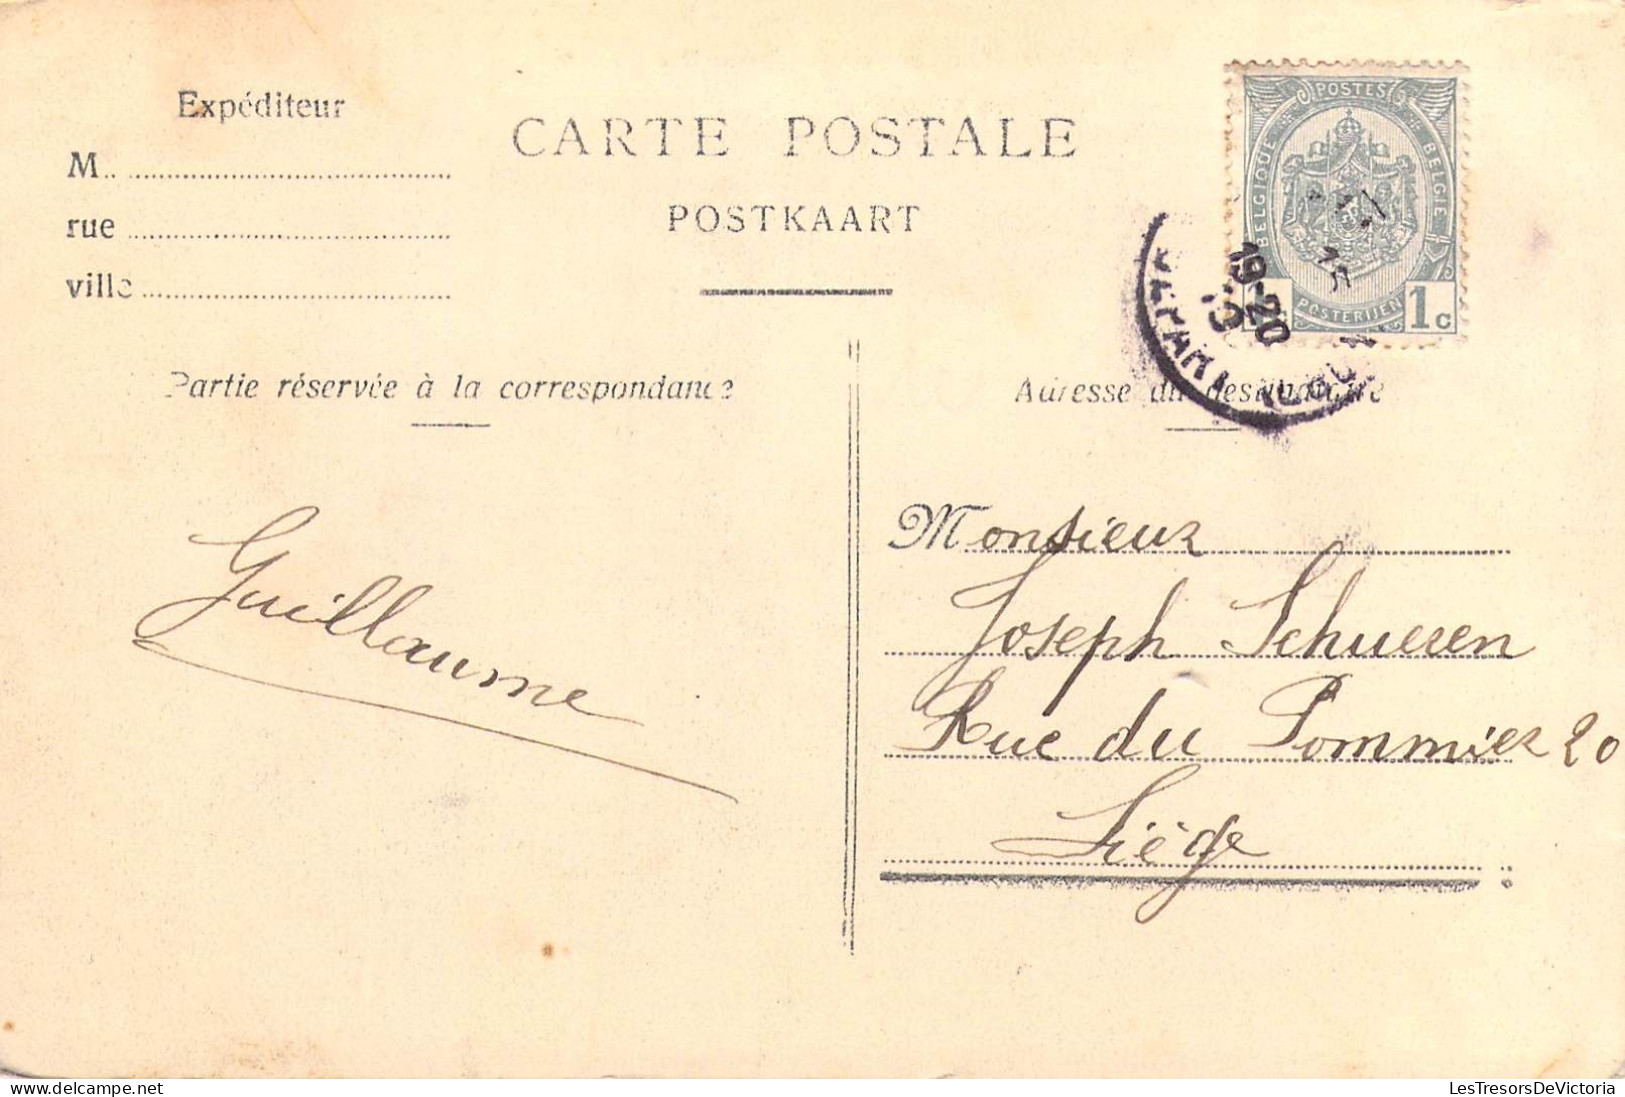 Expéditeur
M.
rue
ville
CARTE POSTALE
POSTKAART
POSTES
BELGIQUE
BELGIE
POSTERIJEN
1c
19-20
Partie réservée à la correspondance
Adresse du destinataire
Guillaume
Monsieur
Joseph Schueren
Rue du Pommier 20
Liège
LesTresorsDeVictoria